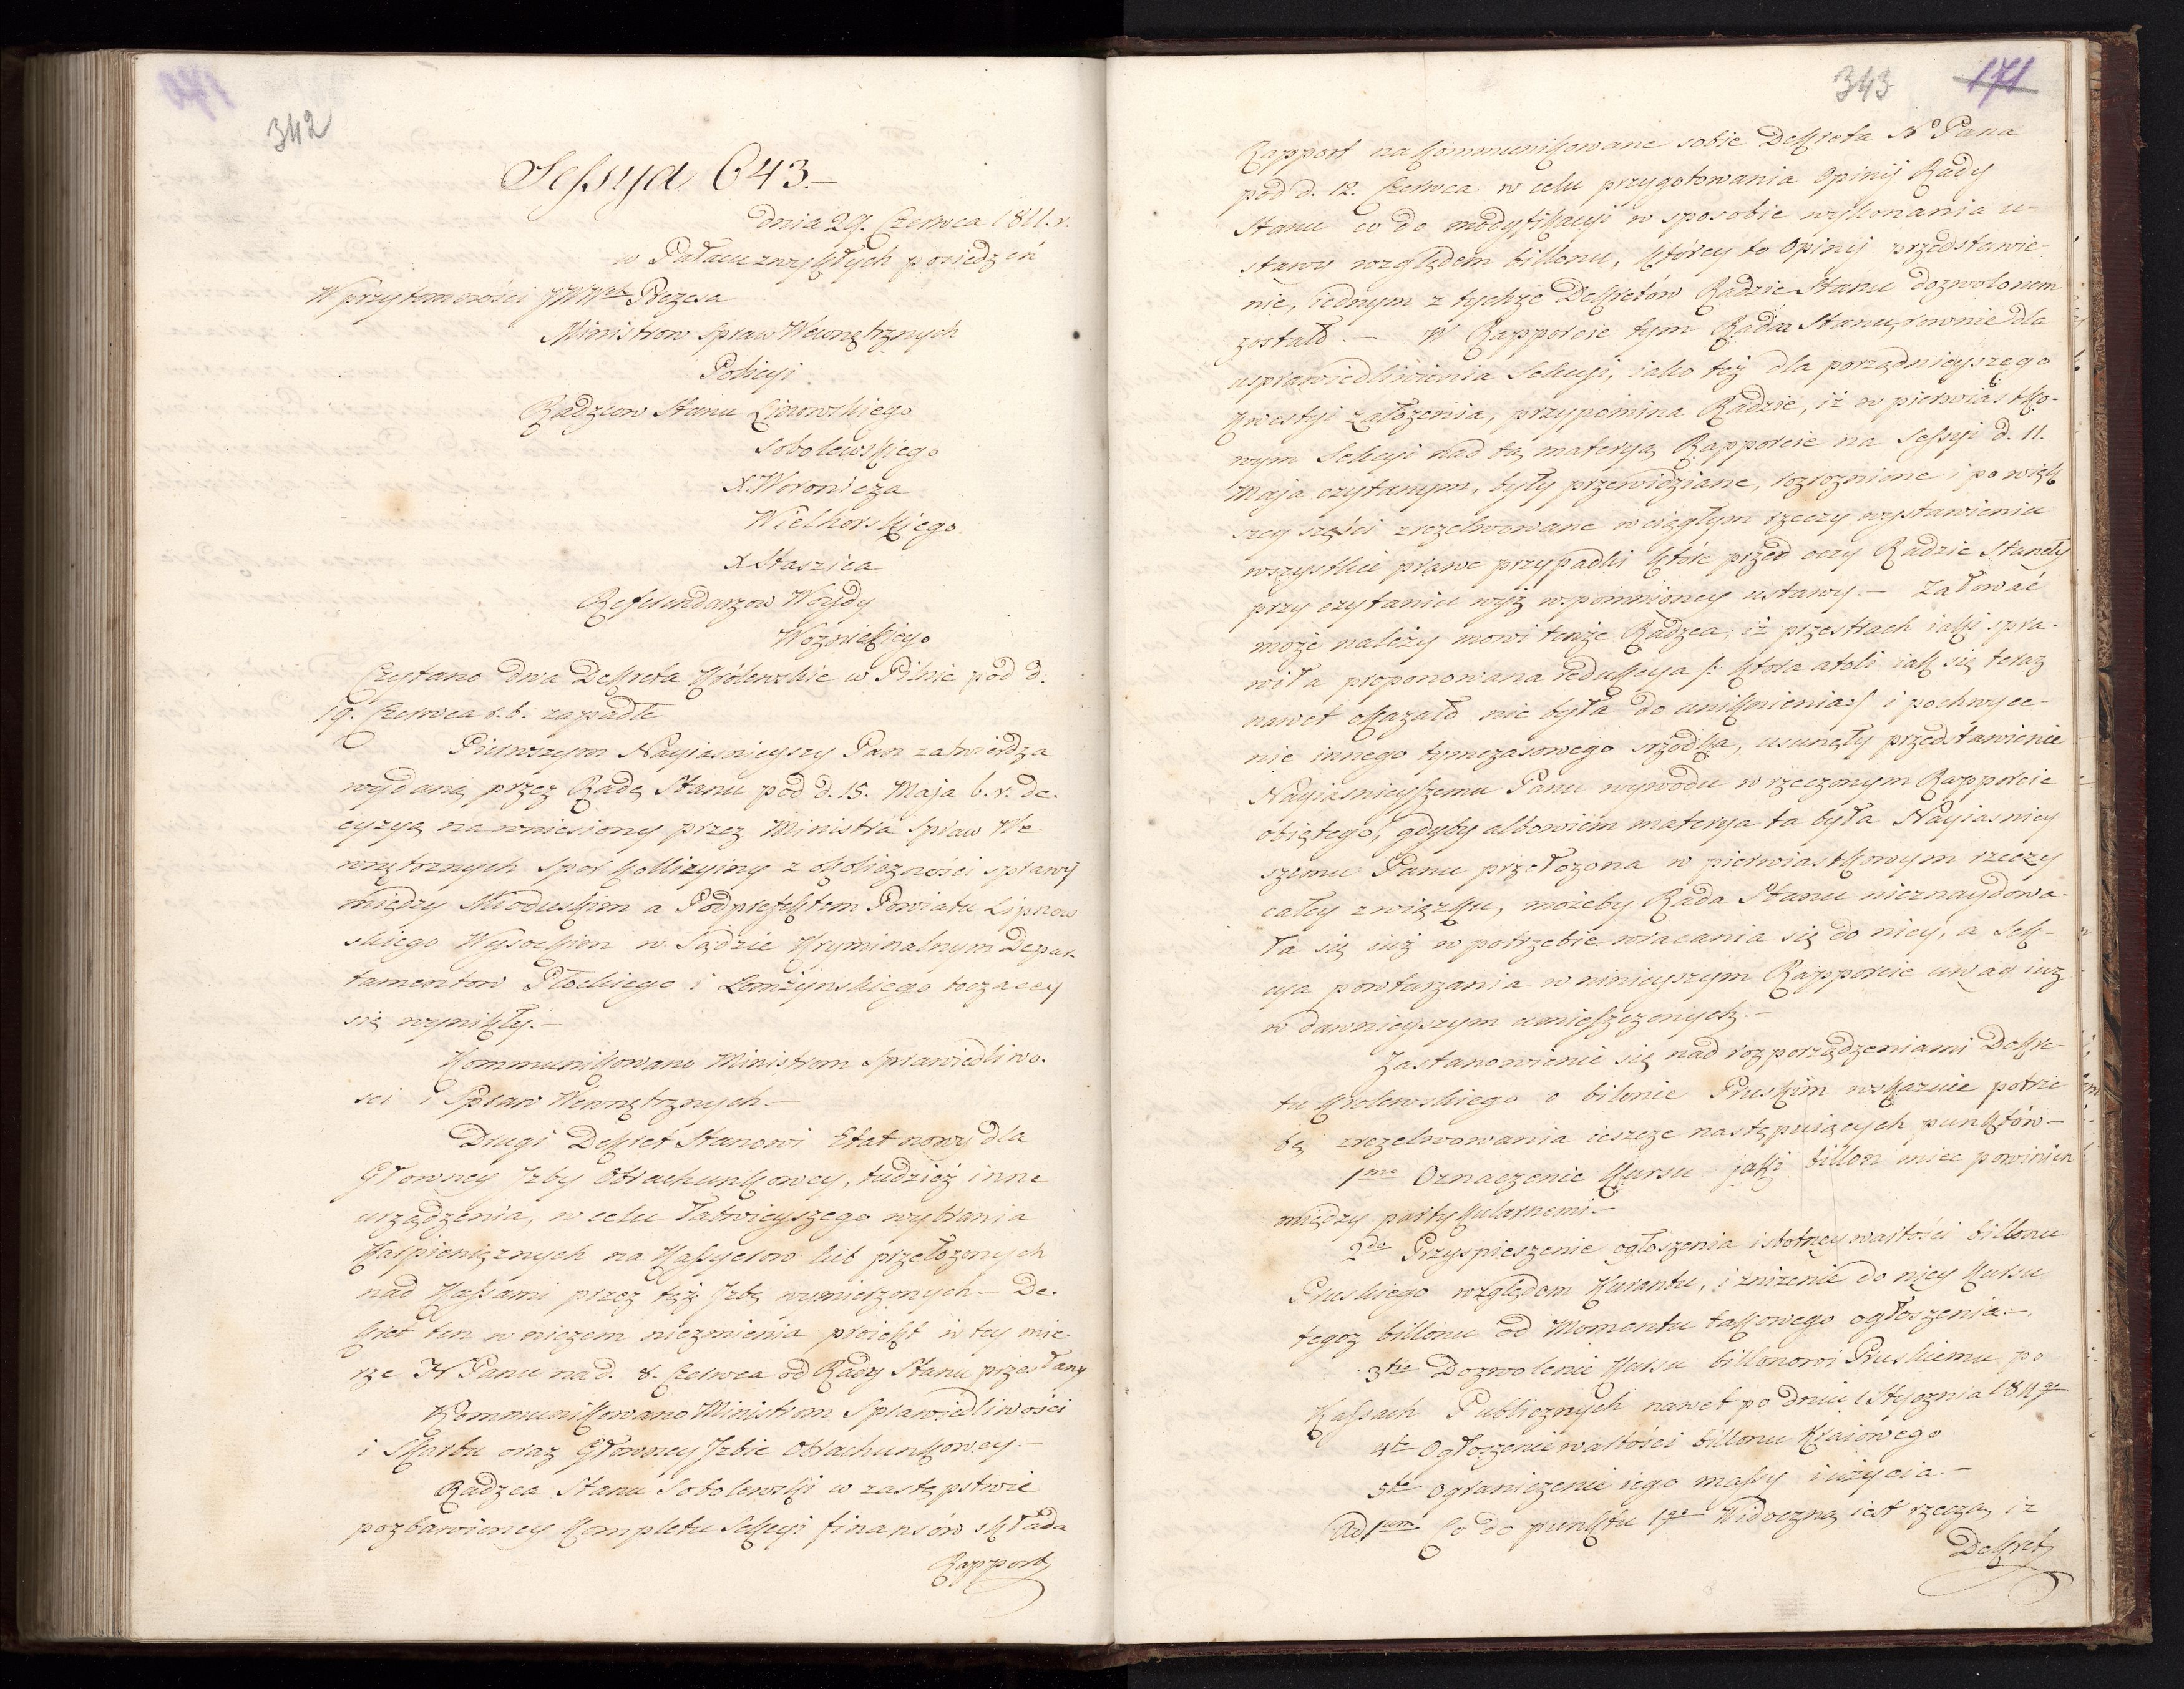 342
Sessya 643.–
dnia 29. Czerwca 1811. r.
w Pałacu zwykłych posiedzeń
W przytomności JWW Prezesa
Ministrow Spraw Wewnętrznych
Policyi
Radzcow Stanu Linowskiego
Sobolewskiego
X. Woronicza
Wielhorskiego
X Staszica
Referendarzow Woydy
Woźnickiego
Czytano dwa Dekreta Królewskie w Pilnic pod d.
19. Czerwca r. b. zapadłe
Pierwszym Nayiasnieyszy Pan zatwierdza
wydaną przez Radę Stanu pod d. 15. Maja b. r. de-
cyzyą na wniesiony przez Ministra Spraw We
wnętrznych spor kollizyiny z okoliczności sprawy
między Mioduskim a Podprefektem Powiatu Lipnow
skiego Wysockim w Sądzie Kryminalnym Depar-
tamentow Płockiego i Łomżynskiego toczącey
się wynikłej.–
Kommunikowano Ministrom Sprawiedliwo-
sci i Spraw Wewnętrznych.–
Drugi Dekret Stanowi Etat nowy dla
Głowney Izby Obrachunkowey, tudzież inne
urządzenia, w celu łatwieyszego wybrania
Kar pieniężnych na Kassyerow lub przełożonych
nad Kassami przez tęż Izbę wymierzonych – De-
kret ten w niczem niezmienia proiekt w tey mie-
rze N Panu na d. 8. Czerwca od Rady Stanu przesłany
Kommunikowano Ministrom Sprawiedliwości
i Skarbu oraz Głowney Izbie Obrachunkowey.–
Radzca Stanu Sobolewski w zastępstwie
pozbawioney Kompletu Sekcyi finansów składa
Rapport
343 171
Rapport na kommunikowane sobie Dekreta No Pana
pod d. 12. Czerwca w celu przygotowania Opinij Rady
Stanu co do modyfikacyi w sposobie wykonania u-
stawy względem billonu, którey to Opinij przedstawie-
nie, iednym z tychże Dekretów Radzie Stanu dozwolonem
zostało.– W Rapporcie tym Radca Stanu, rownie dla
usprawiedliwienia Sekcyi, iako też dla porządnieyszego
Kwestyi założenia, przypomina Radzie, iż w pierwiastko-
wym Sekcyi nad tą materyą Rapporcie na Sessyi d. 11.
Maja czytanym, były przewidziane, rozroznione i po więk
szey części zrezolwowane w ciągłym rzeczy wystawieniu
wszystkie prawe przypadki które przed oczy Radzie Stanęły
przy czytaniu wyż wspomnioney ustawy.– Załować
może należy mowi tenże Radzca, iż przestrach iaki spra-
wiła proponowana redukcya /: ktora atoli iak się teraz
nawet okazało nie była do uniknienia :/ i pochwyce-
nie innego tymczasowego srzodka, usunęły przedstawienie
Nayiasnieyszemu Panu wywodu w rzeczonym Rapporcie
obiętego, gdyby albowiem materya ta była Nayiasniey
szemu Panu przełożona w pierwiastkowym rzeczy
całey związku, możeby Rada Stanu nieznaydowa-
ła się iuż w potrzebie wracania się do niey, a Sek-
cya powtarzania w ninieyszym Rapporcie uwag iuż
w dawnieyszym umieszczonych.–
Zastanowienie się nad rozporządzeniami Dekre-
tu Krolewskiego o bilonie Pruskim wskazuie potrze
bę zrezolwowania ieszcze następuiących punktów –
1mo Oznaczenie Kursu jaki billon miec powinien
między partykularnemi –
2do Przyspieszenie ogłoszenia istotney wartości billonu
Pruskiego względem Kurantu, i zniżenie do niey Kursu
tegoż billonu od Momentu takowego ogłoszenia.–
3tio Dozwolenie Kursu billonowi Pruskiemu po
Kassach Publicznych nawet po dniu 1 Stycznia
4to Ogłoszenie wartości billonu Kraiowego
5to Ograniczenie iego massy i użycia –
Ad 1um Co do punktu 1go Widoczną iest rzeczą iż
Dekret